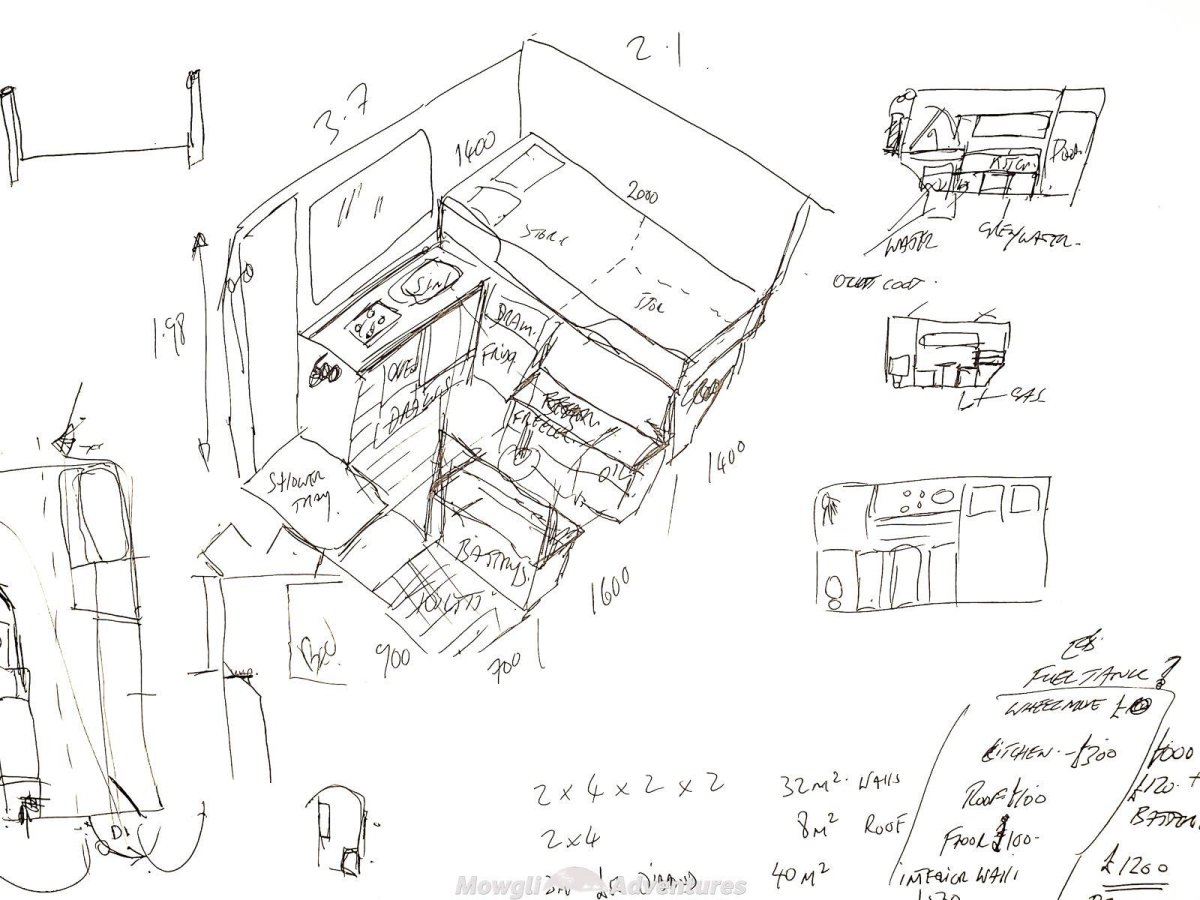 2.1
3.7
1400
2000
STORE
STOR
SINK
1.98
DRAW.
FRIDG
OVEN
DRAWS
FREEZER
OIL
1400
SHOWER
TRAY.
BATTRYS.
TOILET
1600
900
700
BED
KITCH.
WATER
GREY WATER.
GAS
FUEL TANK?
WHEELMOVE £
KITCHEN - £300
ROOF £100
£120. +
FLOOR £100-
INTERIOR WALLS
£1200
2 x 4 x 2 x 2 32M² WALLS
2 x 4 8M² ROOF
40M²
Mowgli Adventures